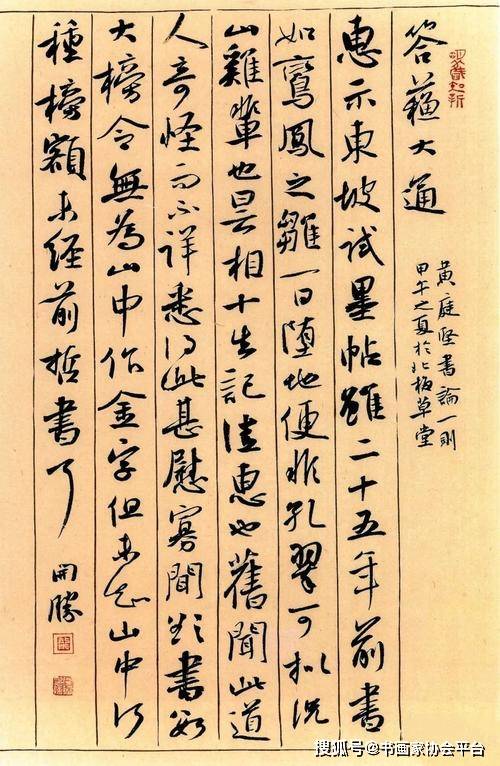 答蘇大通
黃庭堅書論一則
甲午之夏於北板草堂
惠示東坡試墨帖雖二十五年前書
如鸞鳳之雛一日墮地便非孔翠可拟況
山雞輩也昙相十生記法惠也舊聞此道
人奇怪而不详悉得此甚慰寡聞欲書如
大榜今無為山中作金字但未知山中何
種榜額未經前哲書了
開勝
搜狐号@书画家协会平台